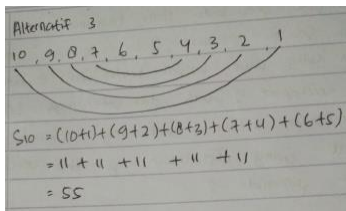 Alternatif 3
10, 9, 8, 7, 6, 5, 4, 3, 2, 1
S10 = (10+1)+(9+2)+(8+3)+(7+4)+(6+5)
= 11 + 11 + 11 + 11 + 11
= 55